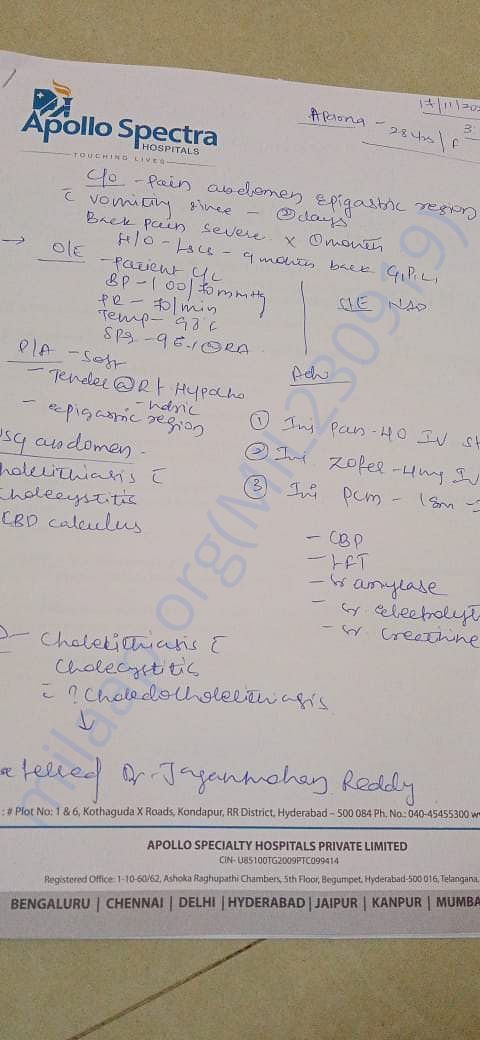 Apollo Spectra
HOSPITALS
TOUCHING LIVES
17/11/20
Aparna - 28 yrs / F
3:
C/o - Pain abdomen epigastric region
c̄ vomiting since - 2 days
Back pain severe x 1 month
H/O - LSCS - 9 months back G1P1L1
→ O/E - Patient C/C
BP - 100/70 mmHg
PR - 70/min
Temp - 98°C
SPO2 - 98% @ RA
S/E NAD
P/A - Soft
- Tender @ Rt Hypocho
-ndric
- epigastric region
USG abdomen -
holelithiasis c̄
cholecystitis
CBD calculus
Adv
① Inj Pan-40 IV st
② Inj Zofer-4mg IV
③ Inj PCM - 1gm -
- CBP
- LFT
- Sr amylase
- Sr. electrolyt
- Sr. creatinine
D - Cholelithiasis c̄
Cholecystitis
c̄ ? Choledocholelithiasis
↓
Referred Dr. Jaganmohan Reddy
milaap.org(MIL_230919)
: # Plot No: 1 & 6, Kothaguda X Roads, Kondapur, RR District, Hyderabad – 500 084 Ph. No.: 040-45455300 w
APOLLO SPECIALTY HOSPITALS PRIVATE LIMITED
CIN- U85100TG2009PTC099414
Registered Office: 1-10-60/62, Ashoka Raghupathi Chambers, 5th Floor, Begumpet, Hyderabad-500 016, Telangana,
BENGALURU | CHENNAI | DELHI | HYDERABAD | JAIPUR | KANPUR | MUMBA